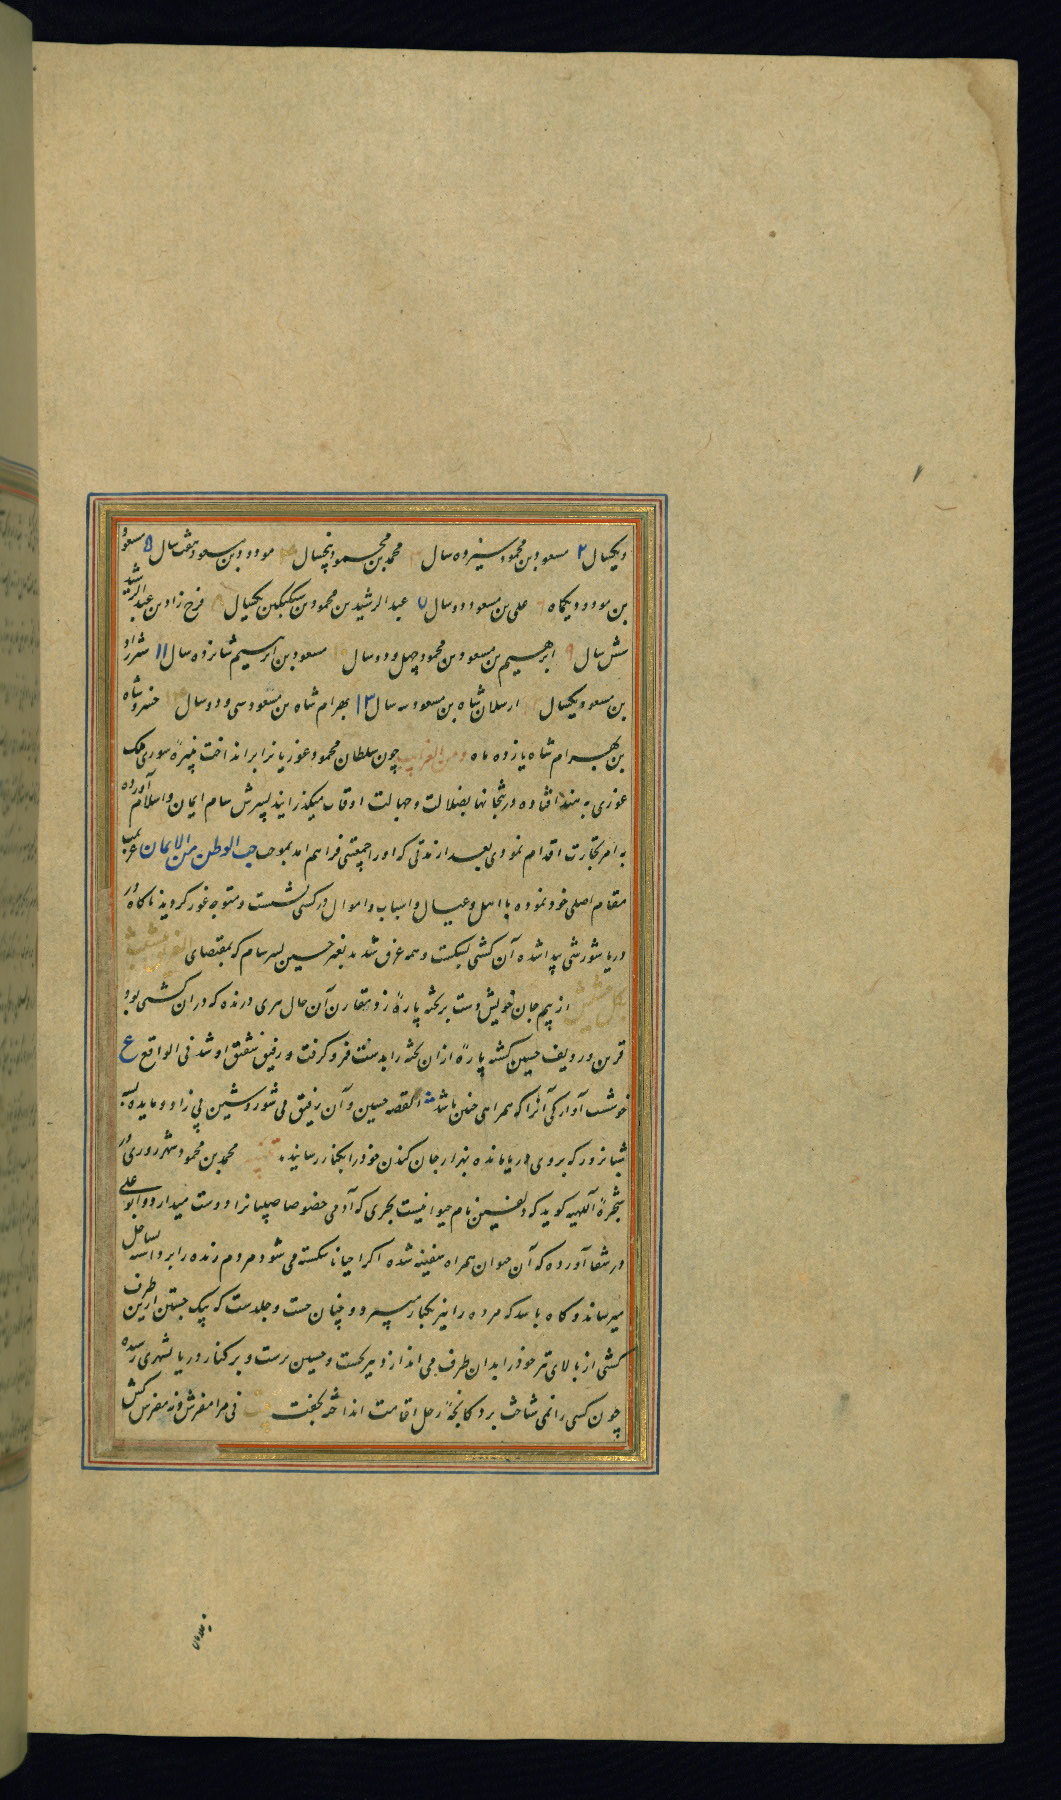 ویکسال ۲ مسعود بن محمود سیزده سال ۳ محمد بن محمود پنجسال ۴ مودود بن مسعود هفت سال ۵ مسعود
بن مودود و یکماه ۶ علی بن مسعود دو سال ۷ عبد الرشید بن محمود بن سبکتکین یکسال ۸ فرخ زاد بن عبد الرشید
شش سال ۹ ابرهیم بن مسعود بن محمود چهل و دو سال ۱۰ مسعود بن ابرهیم شانزده سال ۱۱ شرزاد
بن مسعود یکسال ارسلان شاه بن مسعود سه سال ۱۳ بهرام شاه بن مسعود سی و دو سال خسرو شاه
بن بهرام شاه یازده ماه ومن الغرایب چون سلطان محمود غوریانرا برانداخت نبیرهٔ سوری ملک
غوری به هند افتاده در بتخانها بضلالت و جهالت اوقات میگذرانید پسرش سام ایمان و اسلام آورده
به امر تجارت اقدام نمودی بعد از مدتی که او را جمعیتی فراهم امد بموجب حب الوطن من الایمان عزیمت
مقام اصلی خود نموده با اهل و عیال و اسباب و اموال در کشتی نشست و متوجه غور کردید ناکاه در
دریا شورشی پیدا شده آن کشتی بشکست و همه غرق شدند بغیر حسین پسر سام که بمقتضای الغریق یتشبث
بکل حشیش از بیم جان خویش دست بر تخته پارهٔ زد و مقارن آن حال ببری درنده که در ان کشتی بود
قرین و ردیف حسین کشته پارهٔ از ان تخته را بدست فرو کرفت و رفیق شفیق او شد فی الواقع ع
خوشست آوارکی آنرا که همراهی چنین باشد القصه حسین و آن رفیق می شور و شین بی زاد و مایده سه
شبانروز که بروی دریا مانده بهزار جان کندن خود را بکنار رسانیدند محمد بن محمود شهرزوری در
شجرهٔ آلهیه کوید که دلفین نام حیوانیست بحری که آدمی خصوصا صبیانرا دوست میدارد و ابو علی
در شفا آورده که آن حیوان همراه سفینه شده اکر احیانا شکسته می شود مردم زنده را بر داشته بساحل
میرساند و کاه باشد که مرده را نیز بکنار میبرد و چنان جست و جلدست که بیک جستن از ین طرف
کشتی از بالای تیر خود را بدان طرف می اندازد ببر بجست و حسین برست و بر کنار دریا بشهری رسیده
چون کسی را نمی شناخت بر دکانچهٔ رحل اقامت انداخته بخفت نی مرا مفرش و نه مفرش کش